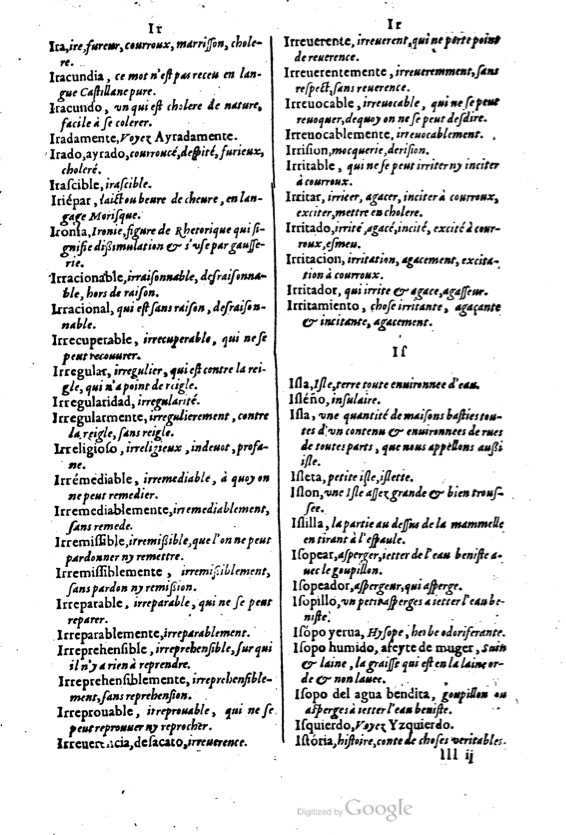 Ir
Ira, ire, fureur, courroux, marrisson, chole-
re.
Iracundia, ce mot n'est pas receu en lan-
gue Castillane pure.
Iracundo, vn qui est cholere de nature,
facile à se colerer.
Iradamente, Voyez Ayradamente.
Irado, ayrado, courroucé, despité, furieux,
choleré.
Irascible, irascible.
Iriépar, laict ou beure de cheure, en lan-
gage Morisque.
Ironia, Ironie, figure de Rhetorique qui si-
gnifie dissimulation & s'vse par gausse-
rie.
Irracionable, irraisonnable, desraisonna-
ble, hors de raison.
Irracional, qui est sans raison, desraison-
nable.
Irrecuperable, irrecuperable, qui ne se
peut recouurer.
Irregular, irregulier, qui est contre la rei-
gle, qui n'a point de reigle.
Irregularidad, irregularité.
Irregularmente, irregulierement, contre
la reigle, sans reigle.
Irreligioso, irreligieux, indeuot, profa-
ne.
Irrémediable, irremediable, à quoy on
ne peut remedier.
Irremediablemente, irremediablement,
sans remede.
Irremissible, irremissible, que l'on ne peut
pardonner ny remettre.
Irremissiblemente, irremissiblement,
sans pardon ny remission.
Irreparable, irreparable, qui ne se peut
reparer.
Irreparablemente, irreparablement.
Irreprehensible, irreprehensible, sur qui
il n'y a rien à reprendre.
Irreprehensiblemente, irreprehensible-
ment, sans reprehension.
Irreprouable, irreprouable, qui ne se
peut reprouuer ny reprocher.
Irreuerencia, desacato, irreuerence.
Ir
Irreuerente, irreuerent, qui ne porte point
de reuerence.
Irreuerentemente, irreueremment, sans
respect, sans reuerence.
Irreuocable, irreuocable, qui ne se peut
reuoquer, dequoy on ne se peut desdire.
Irreuocablemente, irreuocablement.
Irrision, mocquerie, derision.
Irritable, qui ne se peut irriter ny inciter
à courroux.
Irritar, irriter, agacer, inciter à courroux,
exciter, mettre en cholere.
Irritado, irrité, agacé, incité, excité à cour-
roux, esmeu.
Irritacion, irritation, agacement, excita-
tion à courroux.
Irritador, qui irrite & agace, agasseur.
Irritamiento, chose irritante, agaçante
& incitante, agacement.
Is
Isla, Isle, terre toute enuironnee d'eau.
Isléño, insulaire.
Isla, vne quantité de maisons basties tou-
tes d'vn contenu & enuironnees de rues
de toutes parts, que nous appellons aussi
isle.
Isleta, petite isle, islette.
Islon, vne Isle assez grande & bien trous-
see.
Islilla, la partie au dessus de la mammelle
en tirant à l'espaule.
Isopear, asperger, ietter de l'eau beniste a-
uec le goupillon.
Isopeador, aspergeur, qui asperge.
Isopillo, vn petit asperges a ietter l'eau be-
niste.
Isópo yerua, Hysope, herbe odoriferante.
Isopo humido, afeyte de muger, suin
& laine, la graisse qui est en la laine or-
de & non lauee.
Isopo del agua bendita, goupillon ou
asperges à ietter l'eau beniste.
Isquierdo, Voyez Yzquierdo.
Istória, histoire, conte de choses veritables.
lll ij
Digitized by Google